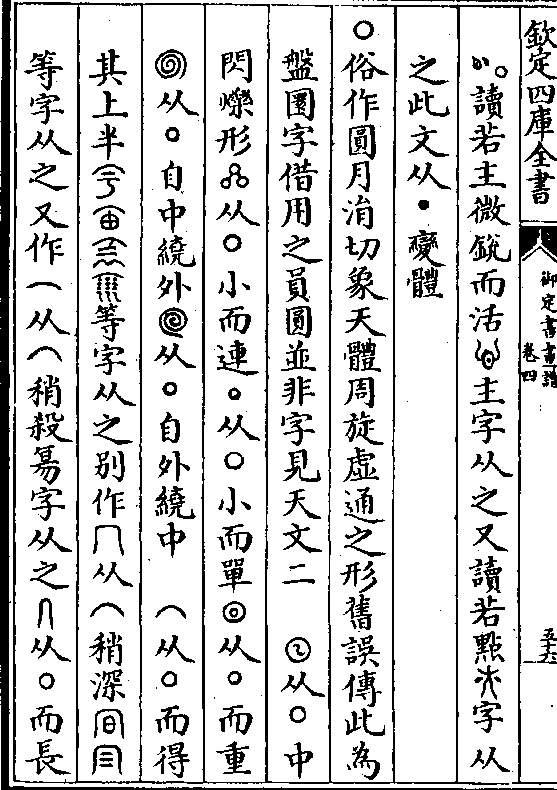 欽定四庫全書
御定書畫譜
卷四
五十六
讀若主微銳而活主字从之又讀若點字从
之此文从變體
○俗作圓月涓切象天體周旋虛通之形舊誤傳此為
盤圍字借用之員圓並非字見天文二 从○中
閃爍形从○小而連。从○小而單◎从○而重
从○自中繞外从○自外繞中 ⌒从○而得
其上半等字从之别作冂从⌒稍深
等字从之又作⌒从⌒稍殺昜字从之∩从○而長